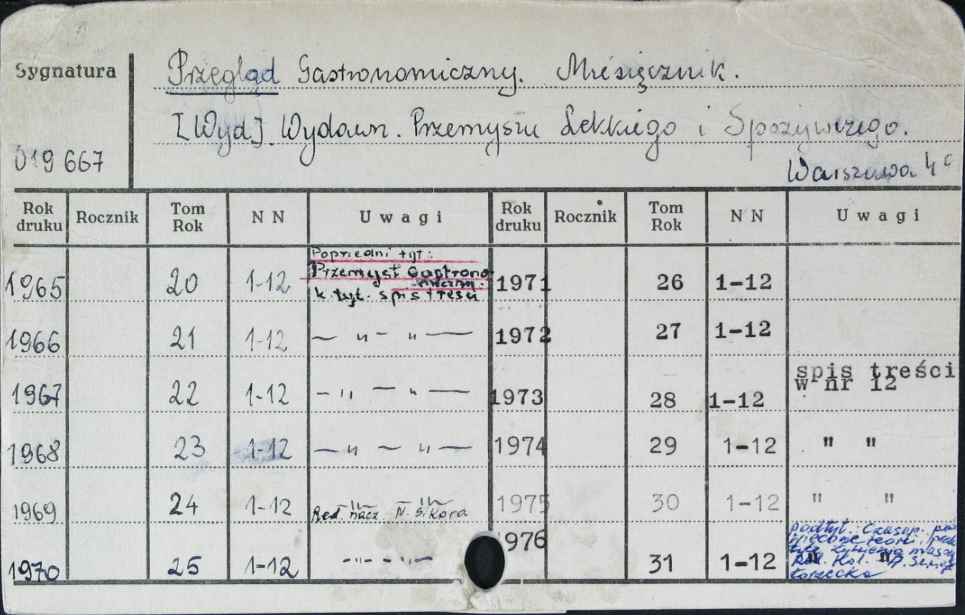 Sygnatura
Przegląd Gastronomiczny. Miesięcznik.
[Wyd] Wydawn. Przemysłu Lekkiego i Spożywczego.
019 667
Warszawa
Rok druku Rocznik Tom Rok NN Uwagi Rok druku Rocznik Tom Rok NN Uwagi
Poprzedni tyt:
Przemysł Gastrono-
miczny.
k. tyt. spis treści
1965 20 1-12 1971 26 1-12
1966 21 1-12 — " — " — 1972 27 1-12
spis treści
w nr 12
1967 22 1-12 — " — " — 1973 28 1-12
1968 23 1-12 — " — " — 1974 29 1-12 " "
1969 24 1-12 — " — " — 1975 30 1-12 " "
Red. nacz. N. Sikora
podtyt: Czasop. po
święcone teorii i prak
tyce żywienia
1970 25 1-12 — " — " — 1976 31 1-12 " "
Kol.